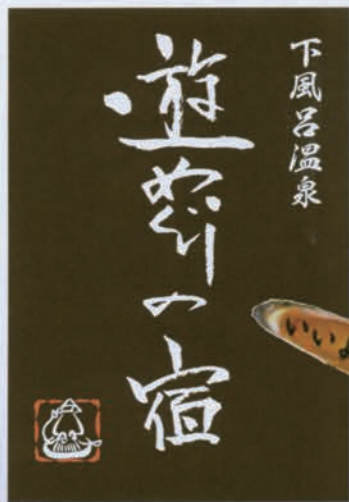 下風呂温泉
遊めぐりの宿
いい